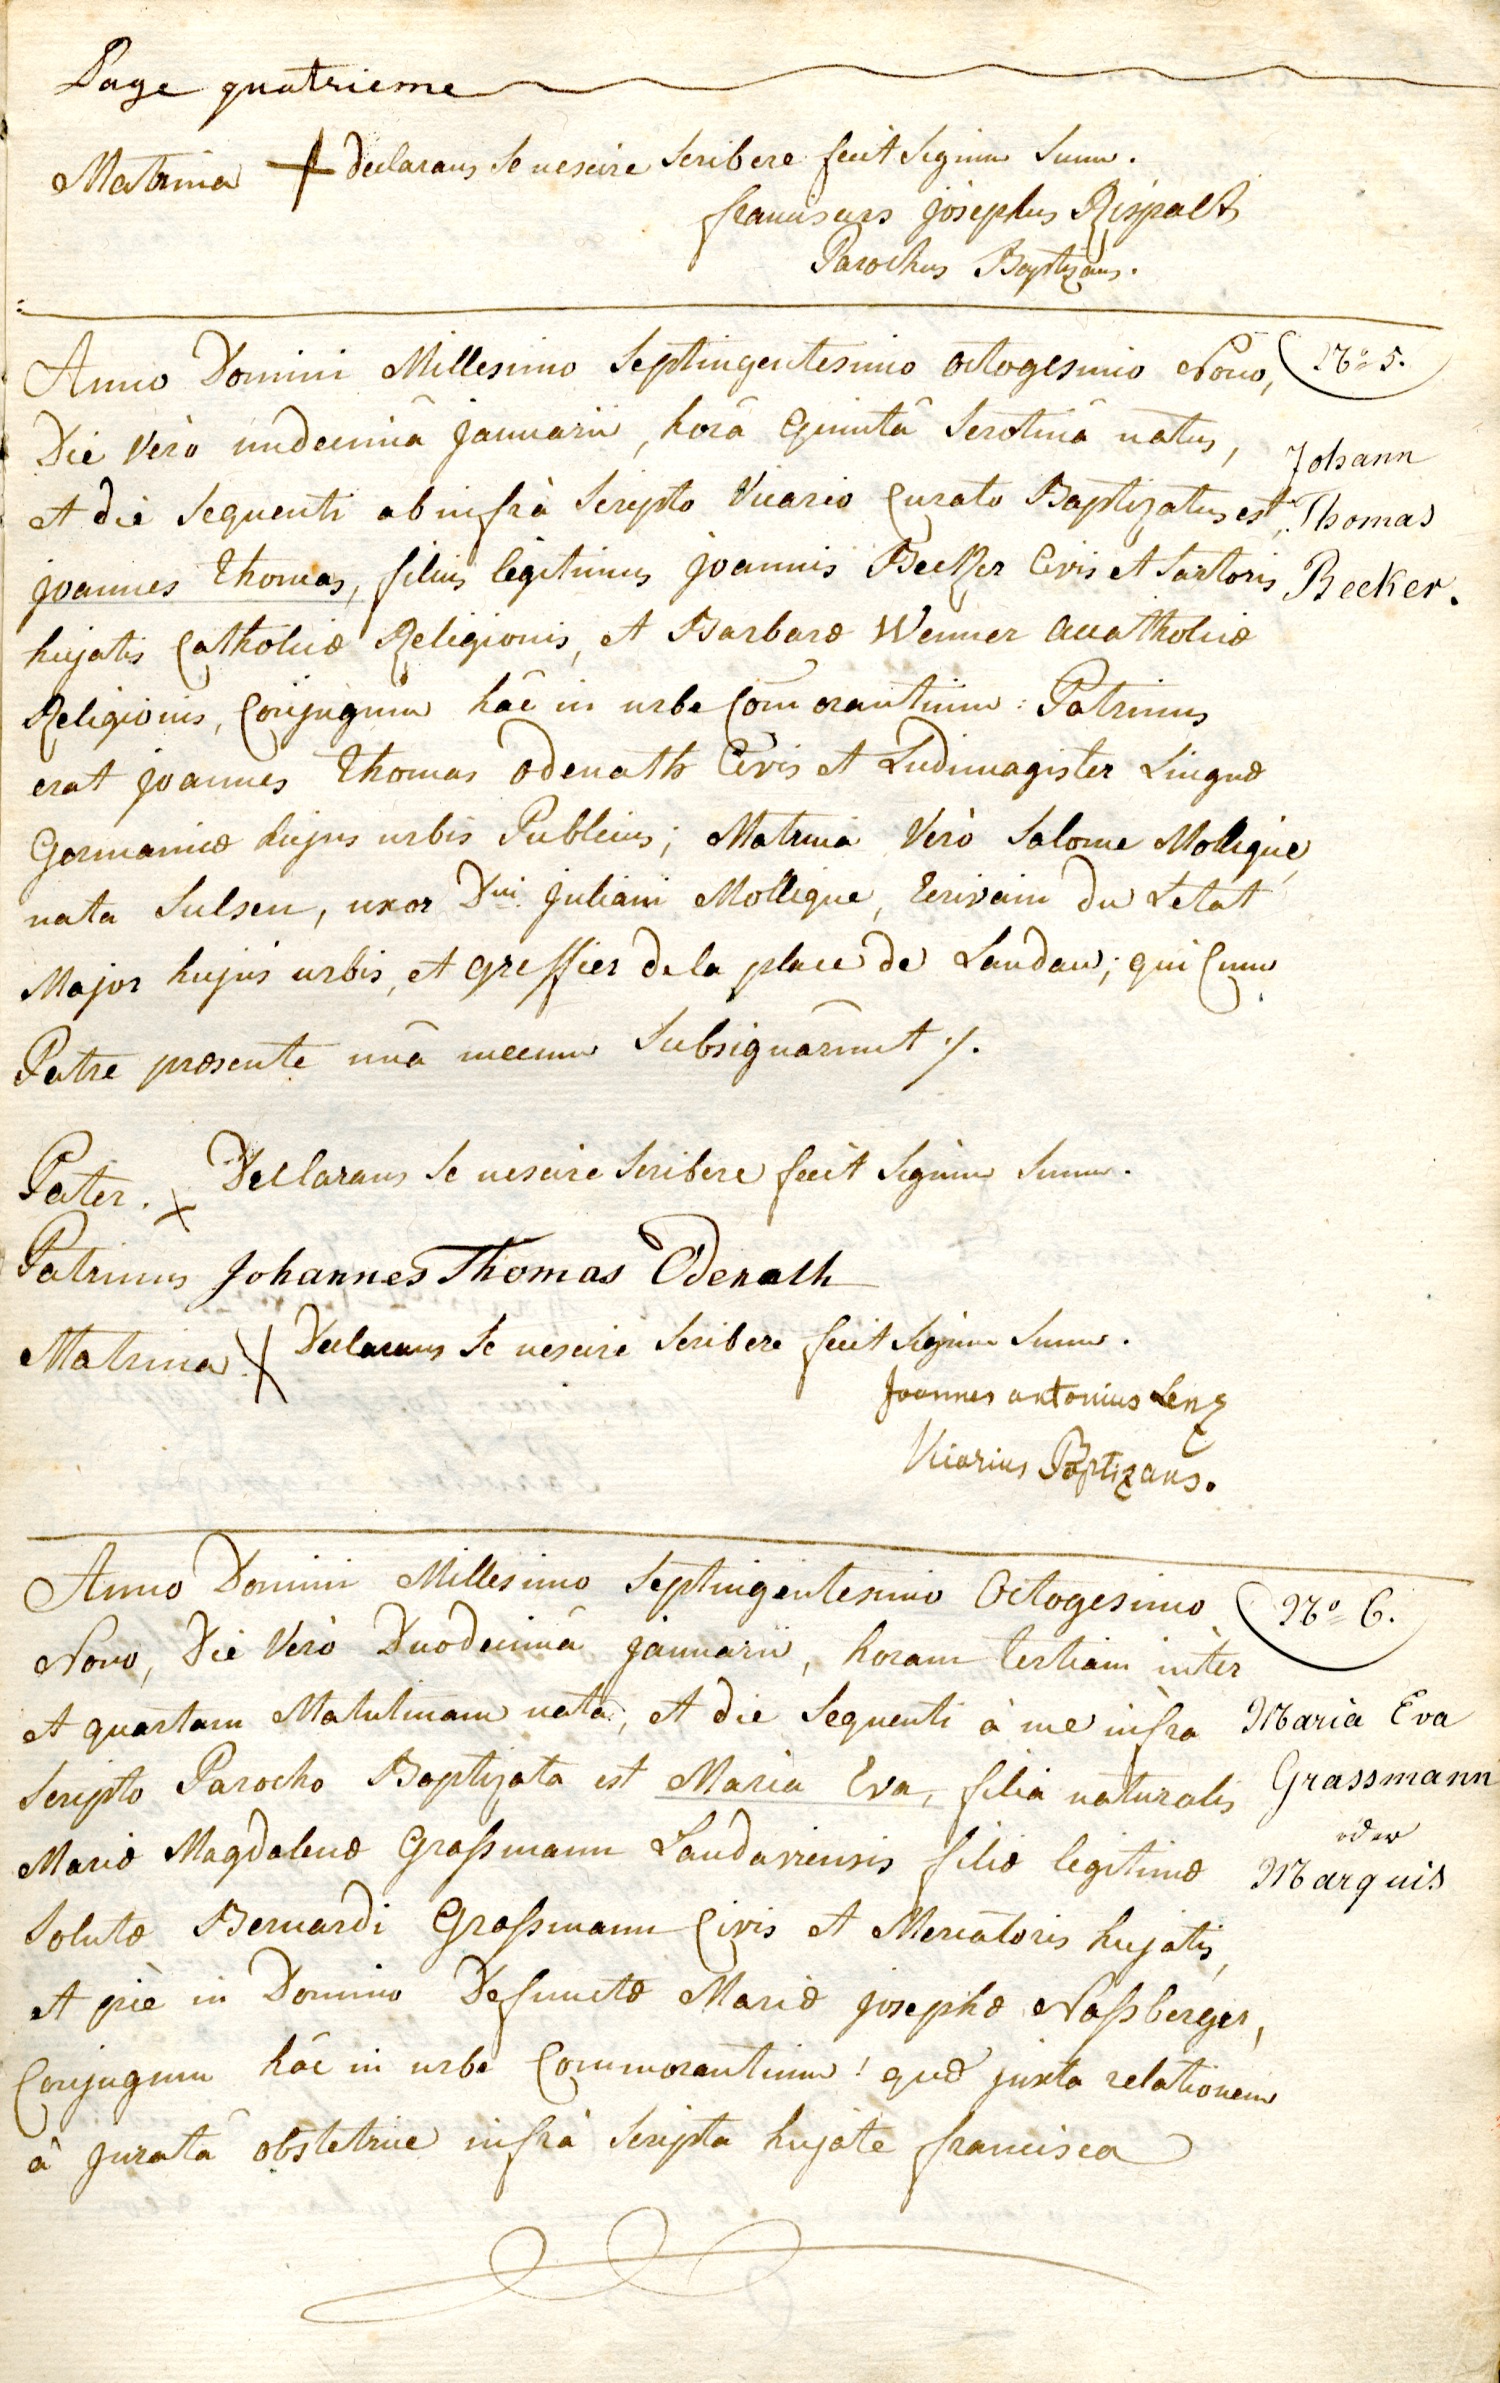 Page quatrieme
Matrina + declarans se nescire scribere fecit signum suum.
franciscus josephus Rispalt
Parochus Baptizans.
Anno Domini Millesimo septingentesimo octogesimo Nono,
No 5.
Die Verò undecimâ januarii, horâ quintâ serotinâ natus,
et die sequenti ab infrà scripto Vicario Curato Baptizatus est
joannes Thomas, filius legitimus joannis Becker Civis et sartoris
Johann
Thomas
Becker.
hujatis Catholicæ Religionis, et Barbaræ Wenner acatholicæ
Religionis, Conjugum hâc in urbe Com̄orantium: Patrinus
erat joannes Thomas Odenath Civis et Ludimagister Linguæ
Germanicæ hujus urbis Publicus; Matrina Verò Salome Mollique,
nata Sulsen, uxor Dni juliani Mollique, Ecrivain du Letat
Major hujus urbis, et greffier de la place de Landau; qui Cum
Patre præsente unâ mecum Subsignârunt ./.
Pater. x Declarans se nescire scribere fecit signum suum.
Patrinus Johannes Thomas Odenath
Matrina x Declarans se nescire scribere fecit signum suum.
Joannes antonius Lenz
Vicarius Baptizans.
Anno Domini Millesimo septingentesimo Octogesimo
No 6.
Nono, Die Verò Duodecimâ januarii, horam tertiam inter
et quartam Matutinam nata, et die sequenti à me infra
scripto Parocho Baptizata est Maria Eva, filia naturalis
Maria Eva
Grassmann
oder
Marquis
Mariæ Magdalenæ Graßmann Landaviensis filiæ legitimæ
solutæ Bernardi Graßmann Civis et Mercatoris hujatis,
et piè in Domino Defunctæ Mariæ josephæ Naßberger,
Conjugum hâc in urbe Commorantium! quæ juxta relationem
à juratâ obstetrice infrà scripta hujate francisca